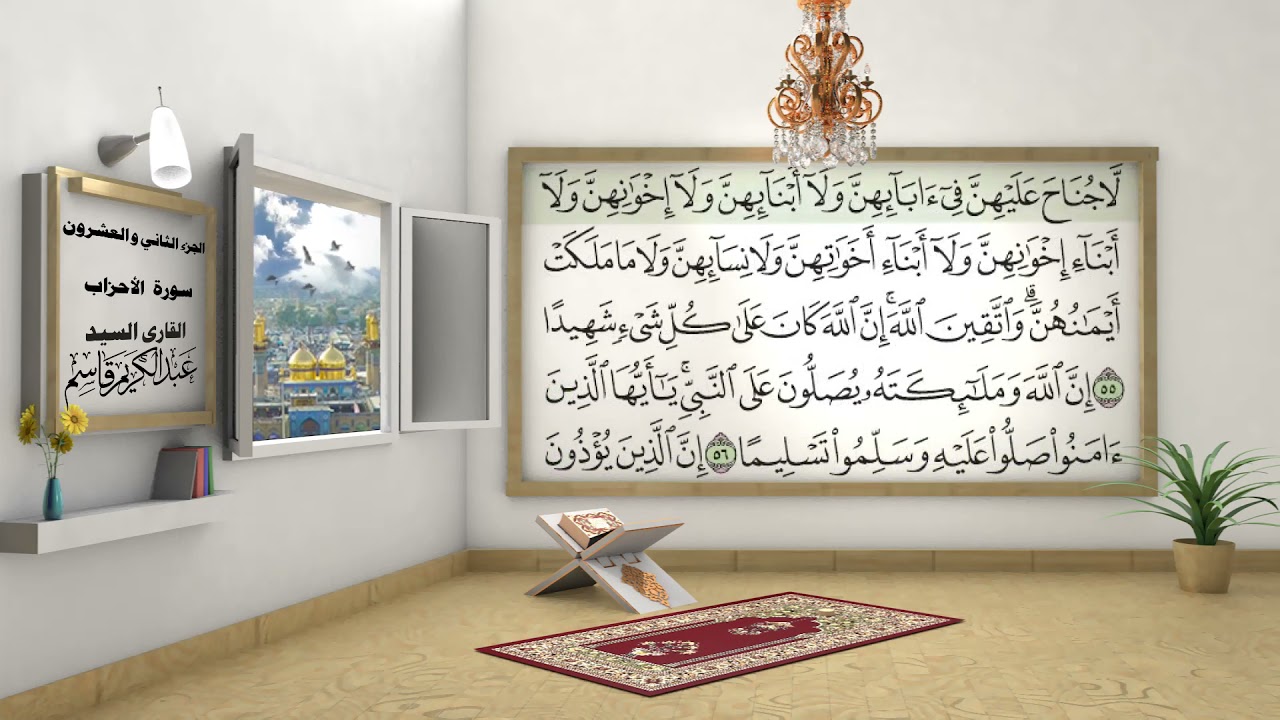 لَّا جُنَاحَ عَلَيْهِنَّ فِىٓ ءَابَآئِهِنَّ وَلَآ أَبْنَآئِهِنَّ وَلَآ إِخْوَٰنِهِنَّ وَلَآ
أَبْنَآءِ إِخْوَٰنِهِنَّ وَلَآ أَبْنَآءِ أَخَوَٰتِهِنَّ وَلَا نِسَآئِهِنَّ وَلَا مَا مَلَكَتْ
أَيْمَـٰنُهُنَّ ۗ وَٱتَّقِينَ ٱللَّهَ ۚ إِنَّ ٱللَّهَ كَانَ عَلَىٰ كُلِّ شَىْءٍ شَهِيدًا
٥٥ إِنَّ ٱللَّهَ وَمَلَـٰٓئِكَتَهُۥ يُصَلُّونَ عَلَى ٱلنَّبِىِّ ۚ يَـٰٓأَيُّهَا ٱلَّذِينَ
ءَامَنُوا۟ صَلُّوا۟ عَلَيْهِ وَسَلِّمُوا۟ تَسْلِيمًا ٥٦ إِنَّ ٱلَّذِينَ يُؤْذُونَ
الجزء الثاني والعشرون
سورة الأحزاب
القارئ السيد
عَبدالكَريم قَاسِم